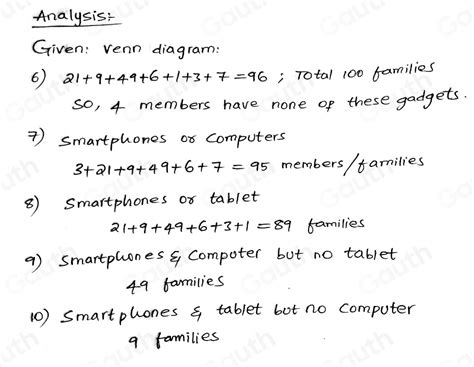 Analysis:-
Given: Venn diagram:
6) 21+9+49+6+1+3+7=96 ; Total 100 families
So, 4 members have none of these gadgets.
7) Smartphones or Computers
3+21+9+49+6+7 = 95 members/families
8) Smartphones or tablet
21+9+49+6+3+1 = 89 families
9) Smartphones & Computer but no tablet
49 families
10) Smartphones & tablet but no Computer
9 families